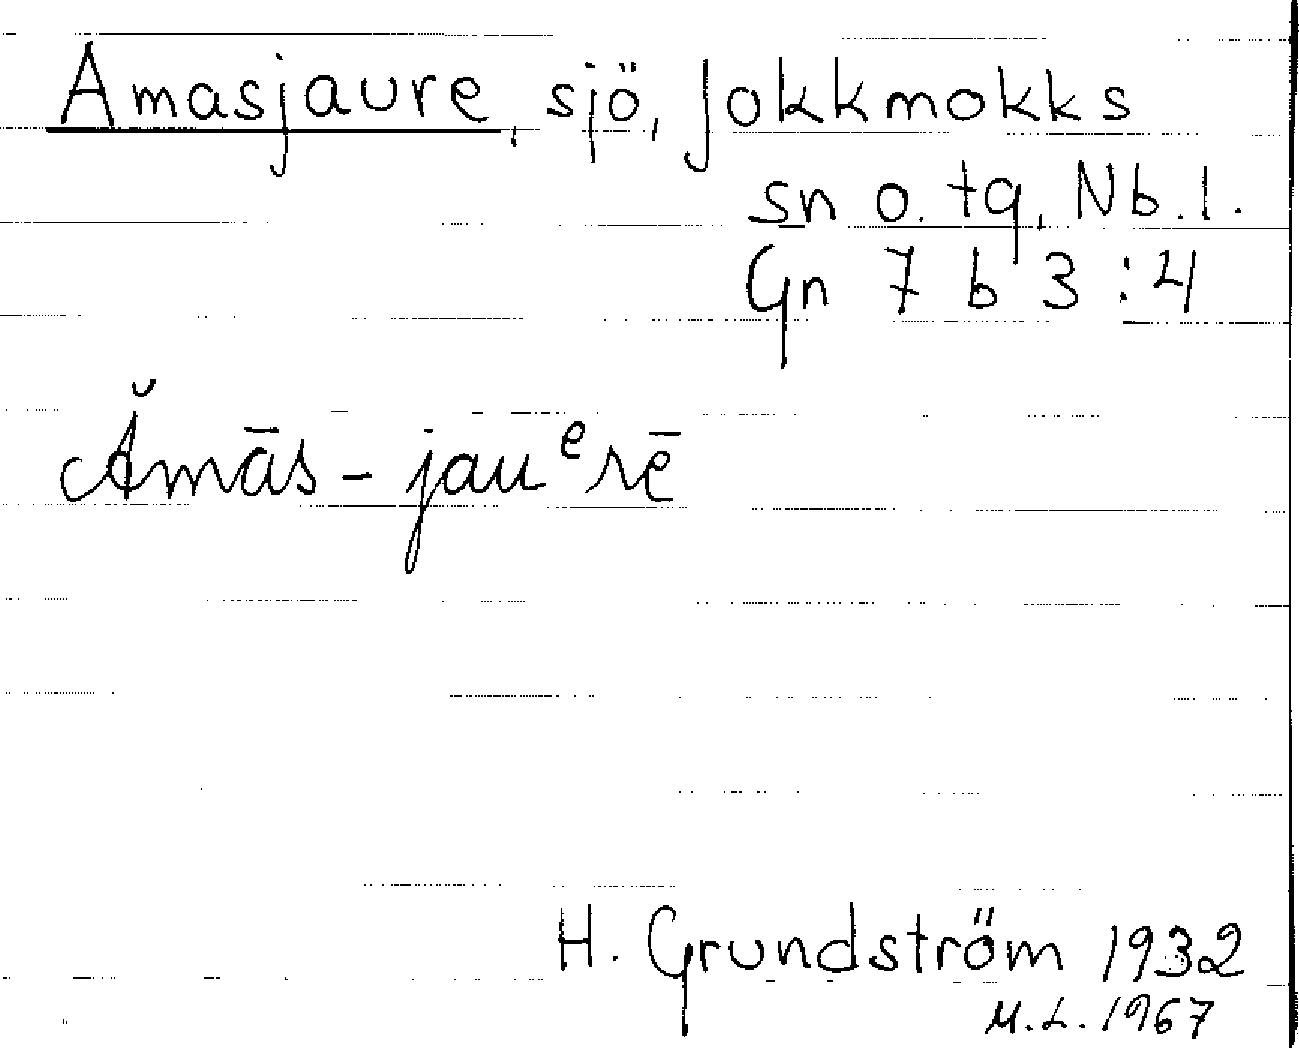 Amasjaure, sjö, Jokkmokks
sn o. tg, Nb. l.
Gn 7 b 3 : 4
Ămās-jauᵉrē
H. Grundström 1932
M.L. 1967